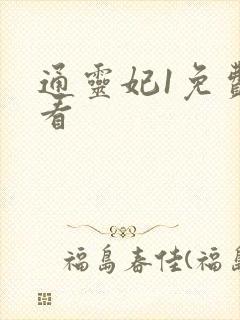 通靈妃1免費
看
福島春佳(福島